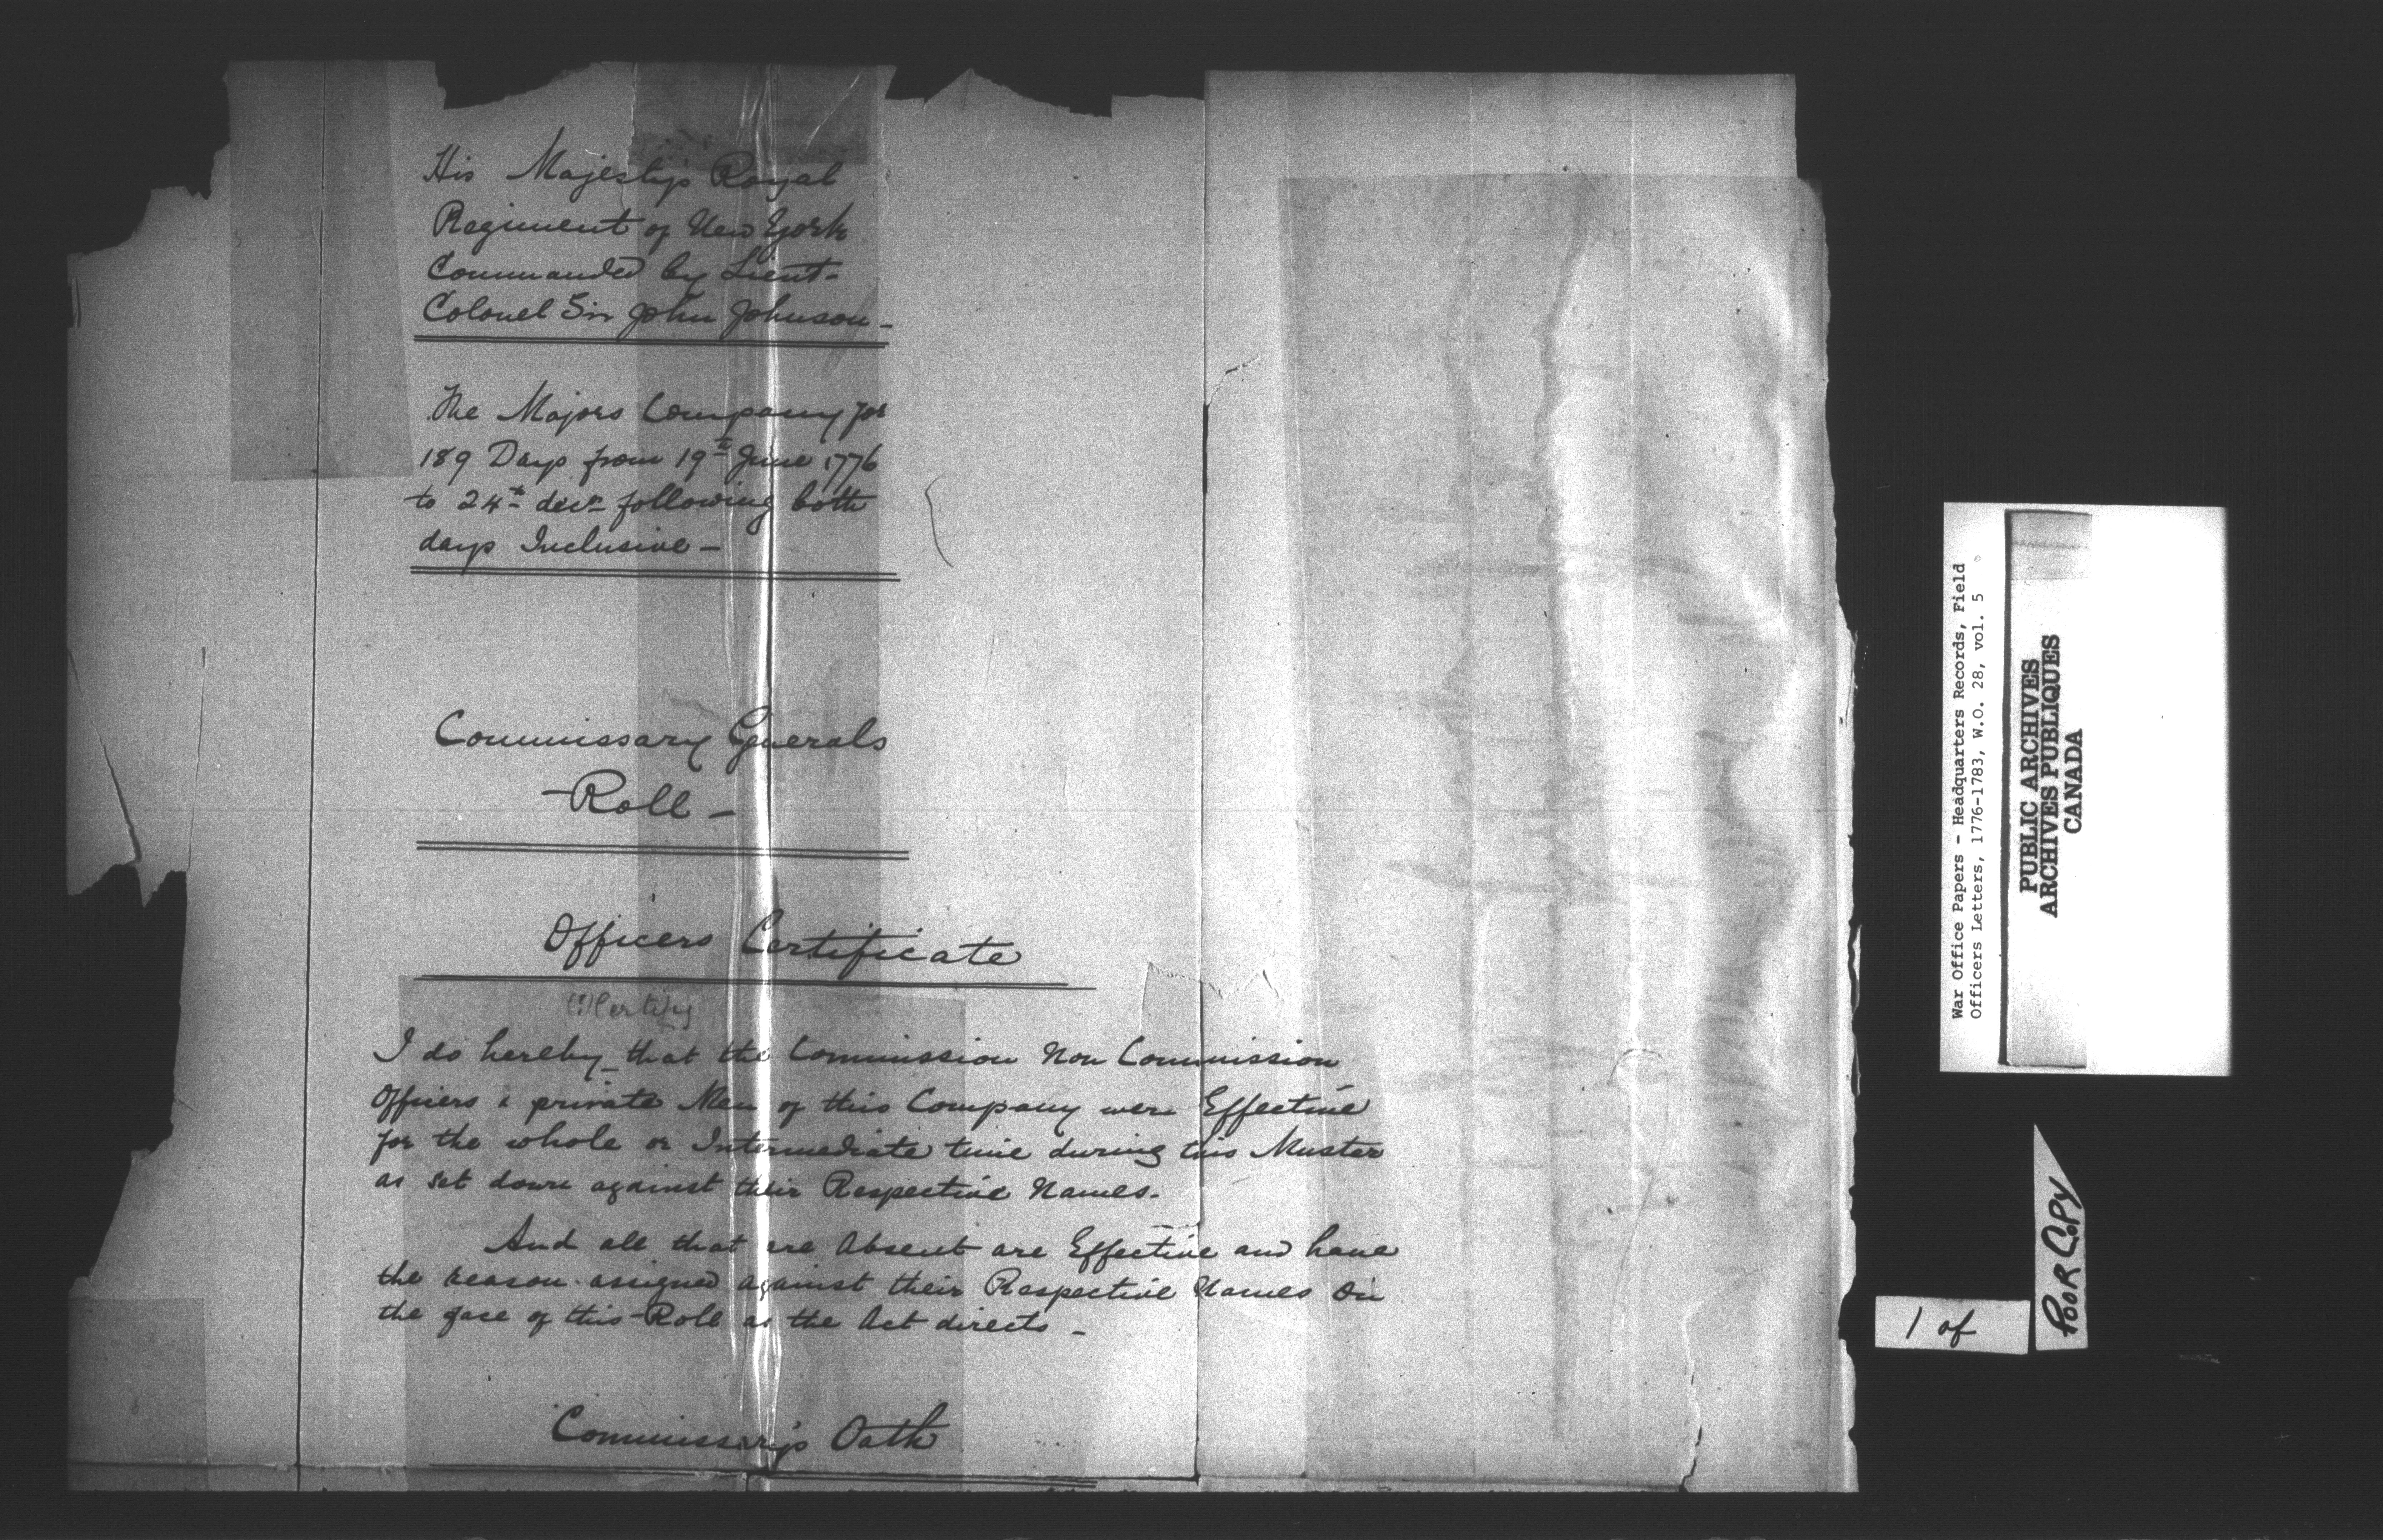 His Majesty's Royal
Regiment of New York
Commanded by Lieut-
Colonel Sir John Johnson-
The Majors Company for
189 Days from 19th June 1776
to 24th decr following both
days Inclusive -
Commissary Generals
-Roll-
Officers Certificate
(?) Certify
I do hereby that the Commission Non Commission
Officers & private Men of this Company were Effective
for the whole or Intermediate time during this Muster
as set down against their Respective Names.
And all that are Absent are Effective and have
the reason assigned against their Respective Names on
the face of this Roll as the Act directs -
Commissary's Oath
War Office Papers - Headquarters Records, Field
Officers Letters, 1776-1783, W.O. 28, vol. 5
PUBLIC ARCHIVES
ARCHIVES PUBLIQUES
CANADA
1 of
POOR COPY